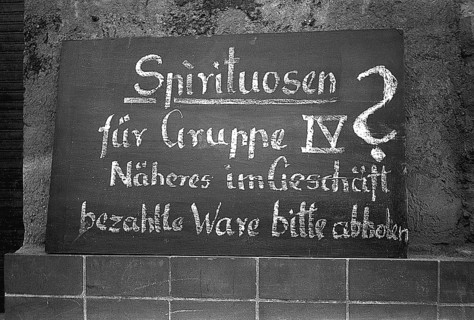 Spirituosen ?
für Gruppe IV
Näheres im Geschäft
bezahlte Ware bitte abholen